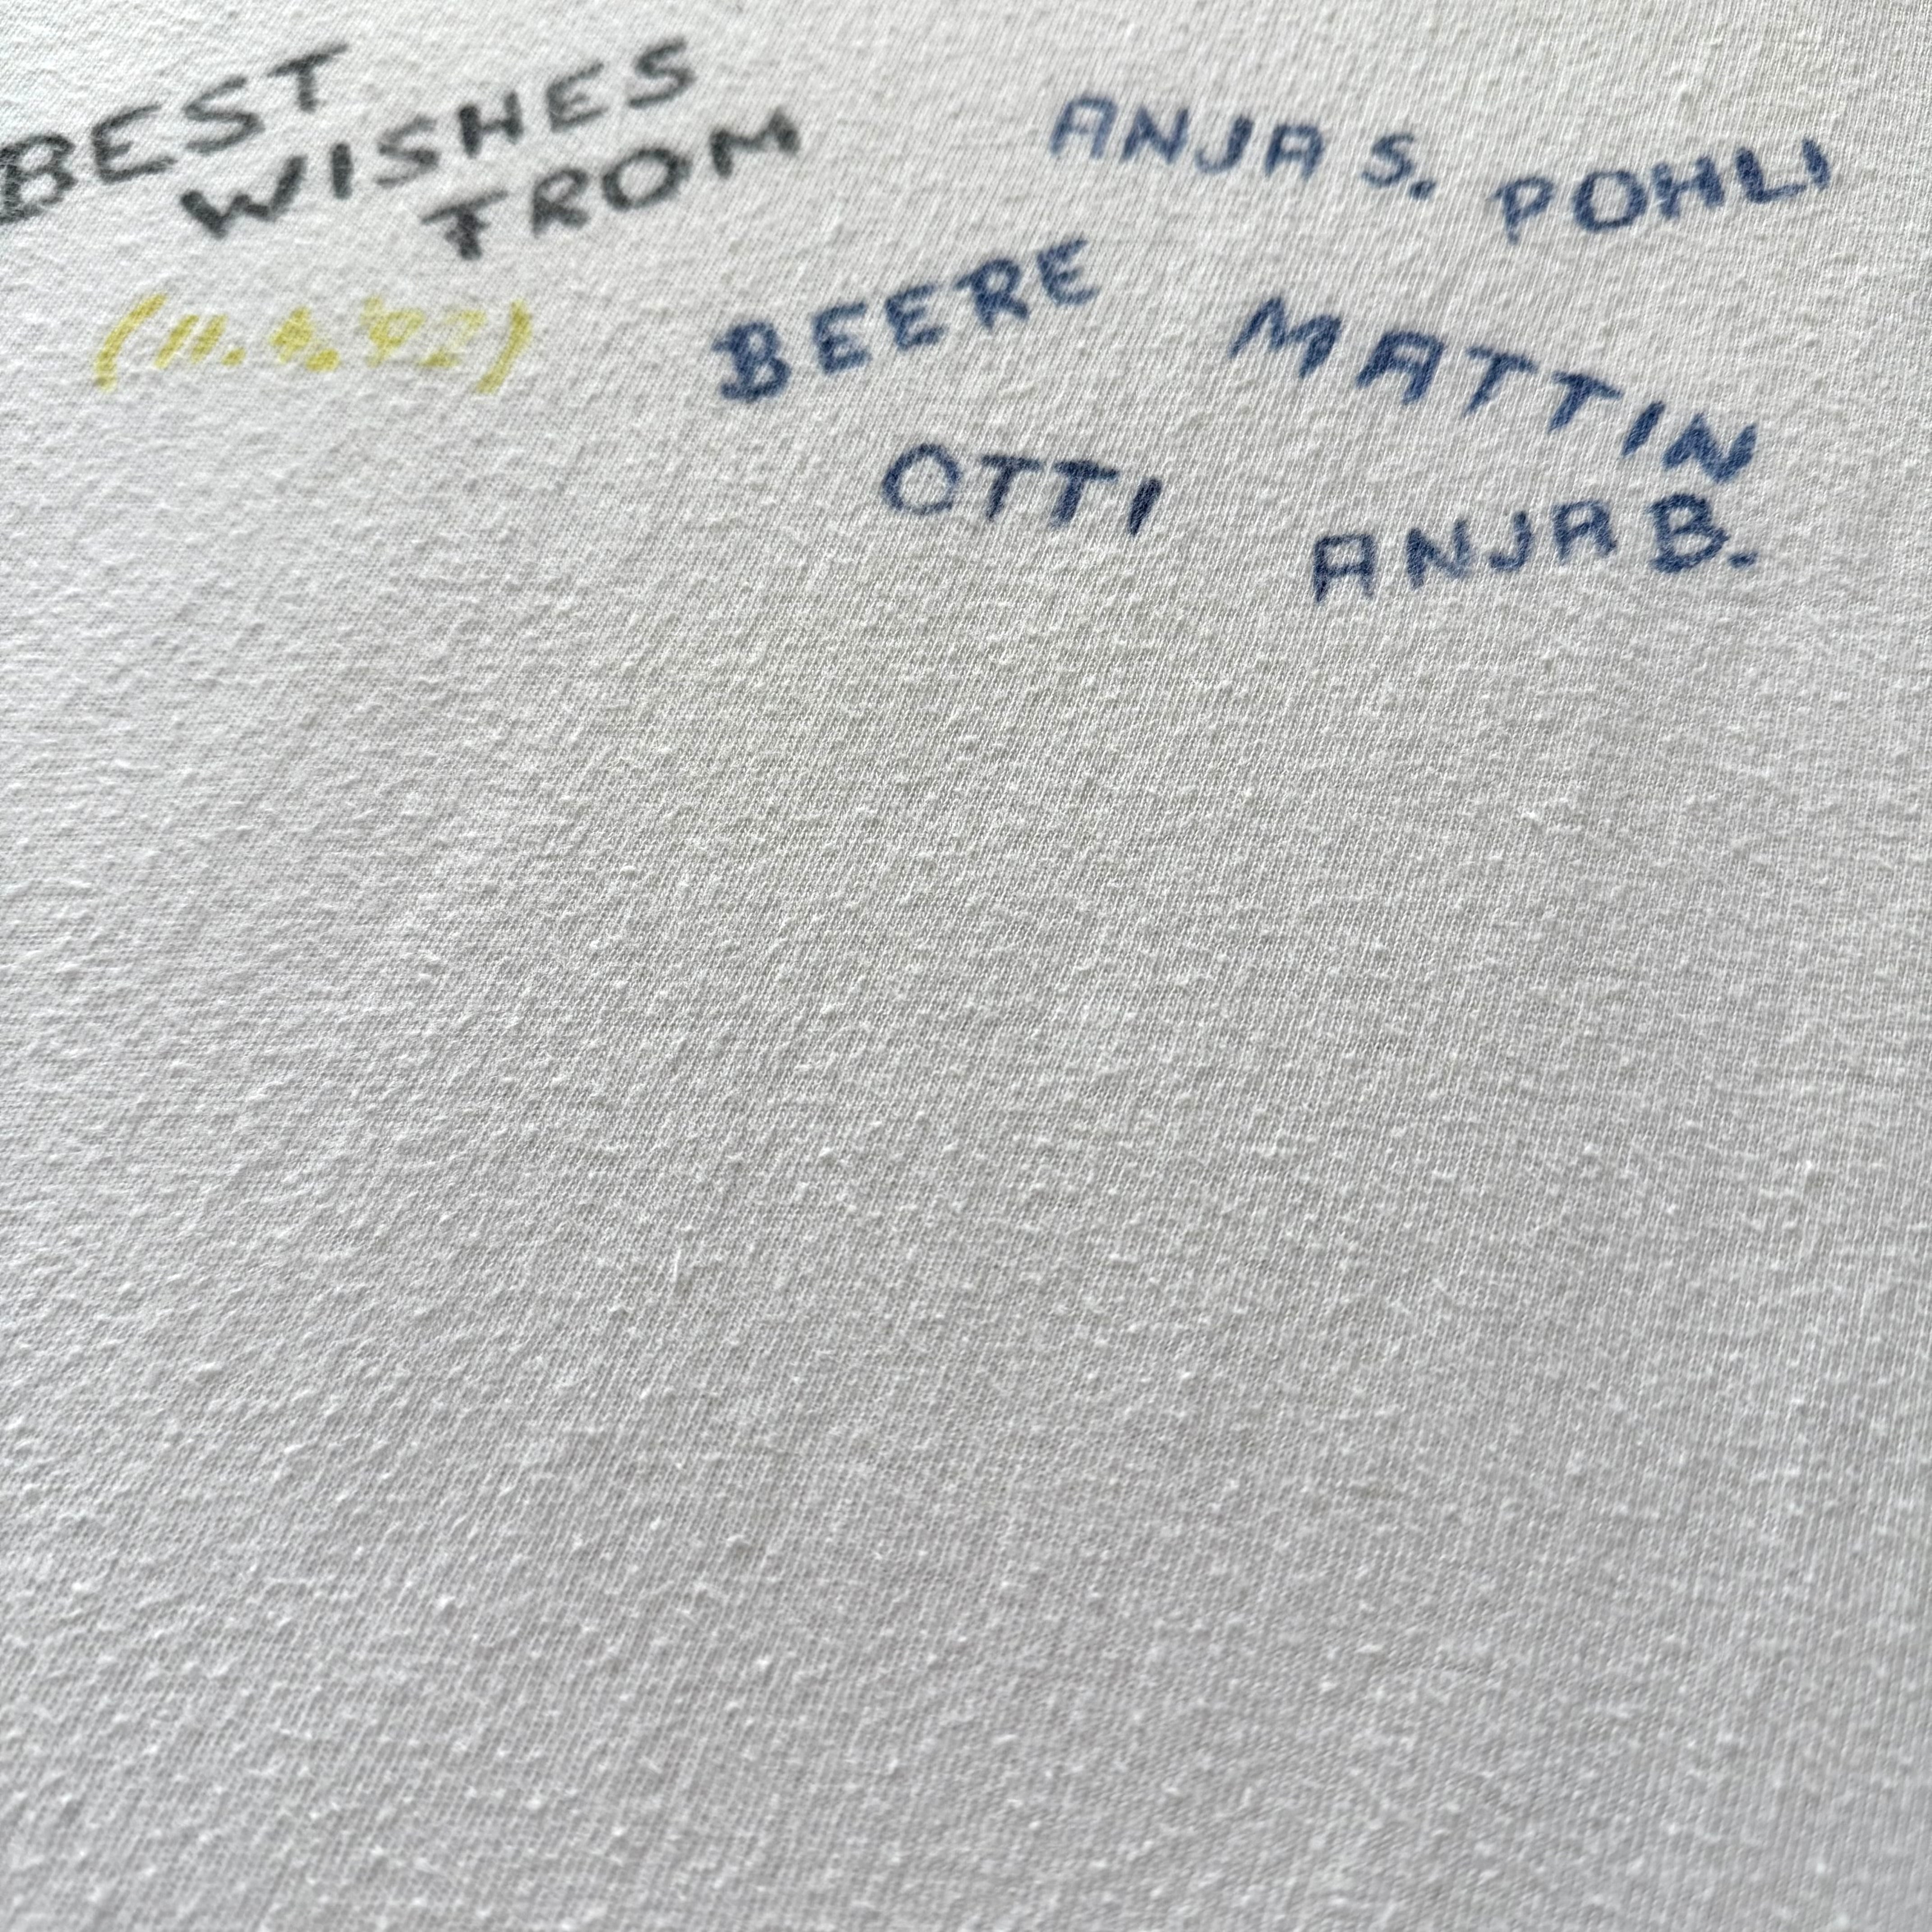 BEST
WISHES
FROM
ANJA S. POHLI
BEERE MATTIN
OTTI ANJA B.